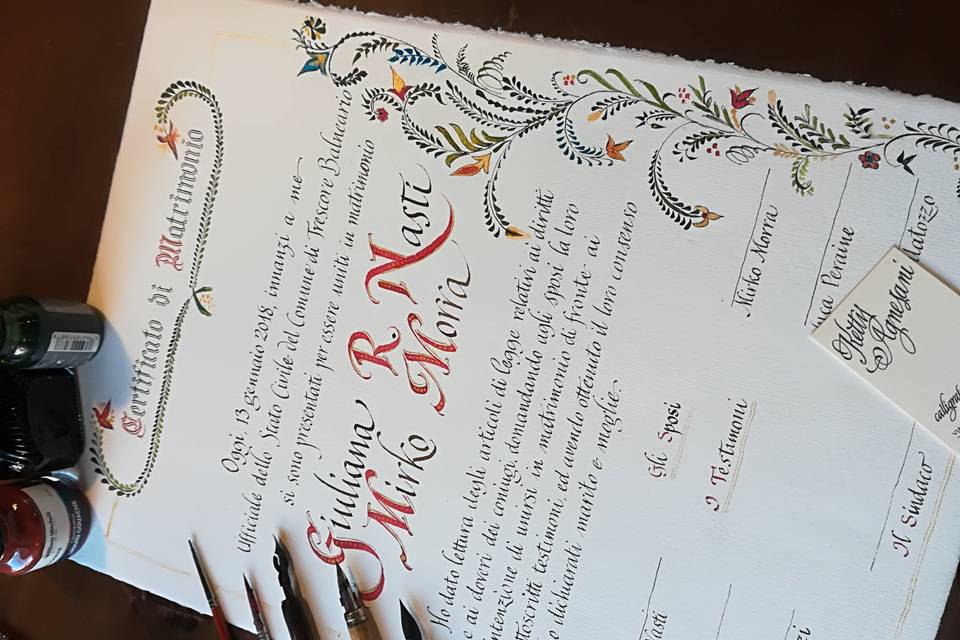 Certificato di Matrimonio
Oggi, 13 gennaio 2018, innanzi a me
Ufficiale dello Stato Civile del Comune di Trescore Balneario
si sono presentati per essere uniti in matrimonio
Giuliana R. Nasti
Mirko Morra
Ho dato lettura degli articoli di legge relativi ai diritti
e ai doveri dei coniugi, domandando agli sposi la loro
intenzione di unirsi in matrimonio di fronte ai
sottoscritti testimoni, ed avendo ottenuto il loro consenso
dichiarati marito e moglie.
Gli Sposi
Nasti
Mirko Morra
I Testimoni
Peraine
Il Sindaco
Ketty
Agnesani